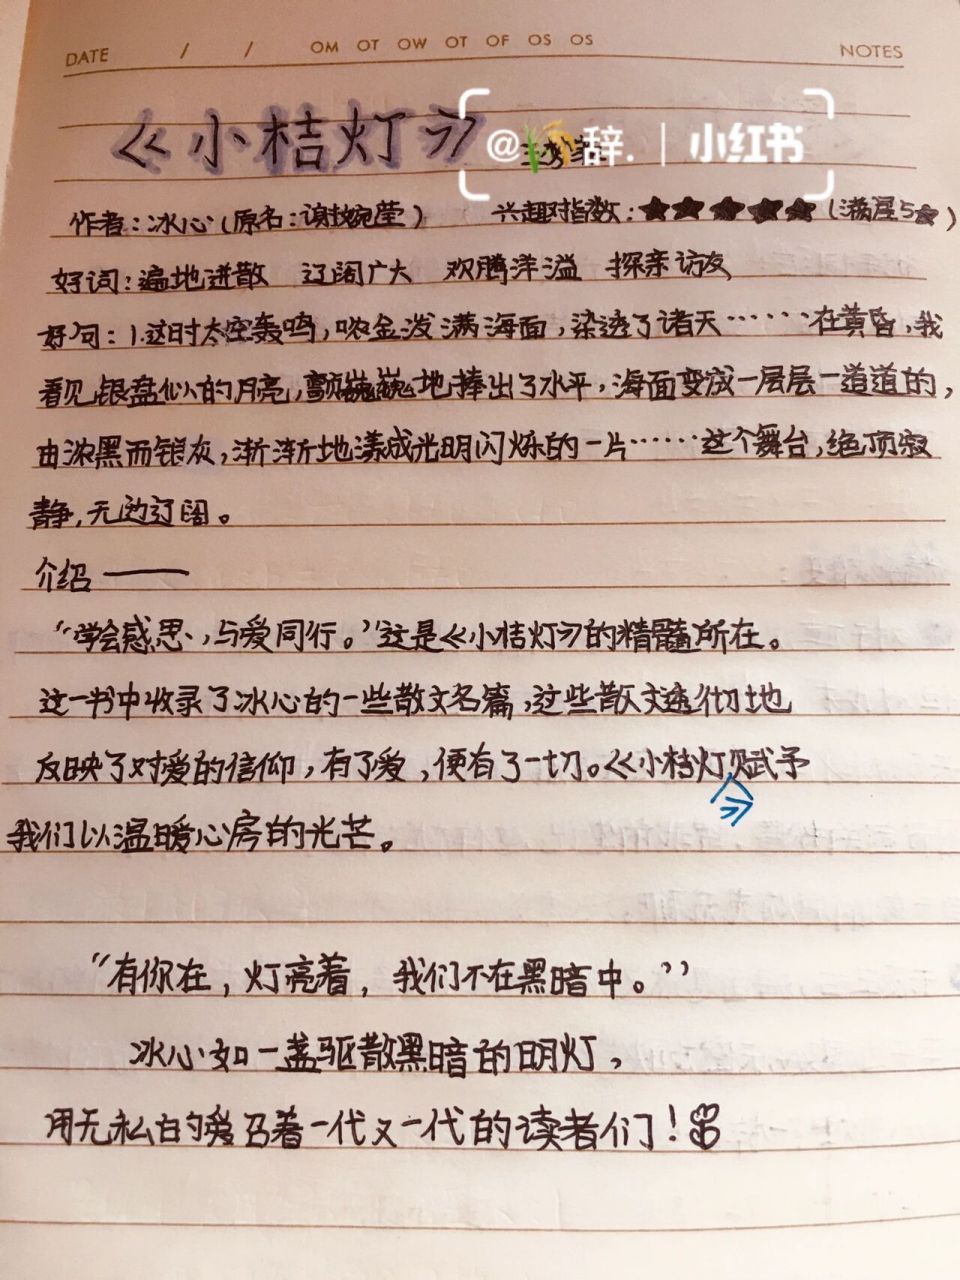 DATE / / OM OT OW OT OF OS OS NOTES
《小桔灯》
@辞. | 小红书
作者:冰心(原名:谢婉莹) 兴趣指数:★★★★★(满星5★)
好词:遍地迸散 辽阔广大 欢腾洋溢 探亲访友
好句:1.这时太空轰鸣,浓金泼满海面,染透了诸天……在黄昏,我
看见银盘似的月亮,颤巍巍地捧出了水平,海面变成一层层一道道的,
由浓黑而银灰,渐渐地漾成光明闪烁的一片……这个舞台,绝顶寂
静,无边辽阔。
介绍——
“学会感恩、与爱同行。”这是《小桔灯》的精髓所在。
这一书中收录了冰心的一些散文名篇,这些散文透彻地
反映了对爱的信仰,有了爱,便有了一切。《小桔灯》赋予
我们以温暖心房的光芒。
“有你在,灯亮着,我们不在黑暗中。”
冰心如一盏驱散黑暗的明灯,
用无私的爱召着一代又一代的读者们!